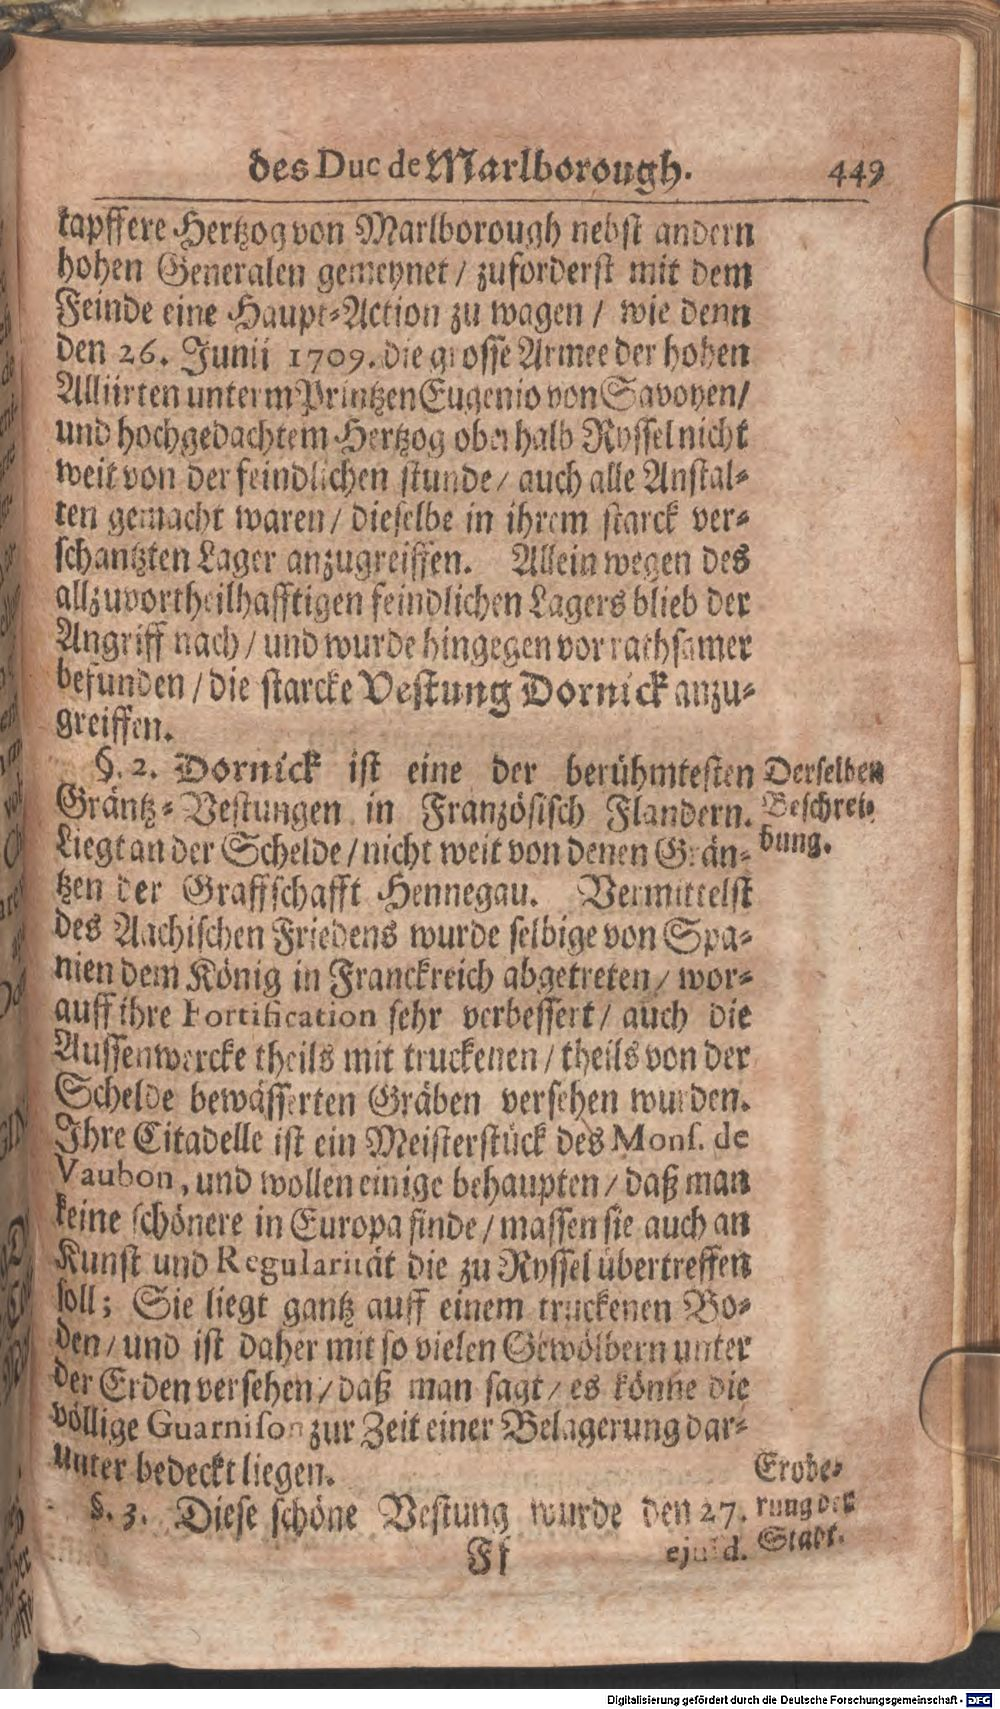 des Duc de Marlborough. 449
tapffere Hertzog von Marlborough nebst andern
hohen Generalen gemeynet / zuforderst mit dem
Feinde eine Haupt-Action zu wagen / wie denn
den 26. Junii 1709. die grosse Armee der hohen
Alliirten unterm Printzen Eugenio von Savoyen /
und hochgedachtem Hertzog oberhalb Ryssel nicht
weit von der feindlichen stunde / auch alle Anstal-
ten gemacht waren / dieselbe in ihrem starck ver-
schantzten Lager anzugreiffen. Allein wegen des
allzuvortheilhafftigen feindlichen Lagers blieb der
Angriff nach / und wurde hingegen vor rathsamer
befunden / die starcke Vestung Dornick anzu-
greiffen.
§. 2. Dornick ist eine der berühmtesten
Gräntz-Vestungen in Französisch Flandern.
Liegt an der Schelde / nicht weit von denen Grän-
tzen der Graffschafft Hennegau. Vermittelst
des Aachischen Friedens wurde selbige von Spa-
nien dem König in Franckreich abgetreten / wor-
auff ihre Fortification sehr verbessert / auch die
Aussenwercke theils mit truckenen / theils von der
Schelde bewässerten Gräben versehen wurden.
Ihre Citadelle ist ein Meisterstück des Mons. de
Vaubon, und wollen einige behaupten / daß man
keine schönere in Europa finde / massen sie auch an
Kunst und Regularität die zu Ryssel übertreffen
soll; Sie liegt gantz auff einem truckenen Bo-
den / und ist daher mit so vielen Gewölbern unter
der Erden versehen / daß man sagt / es könne die
völlige Guarnison zur Zeit einer Belagerung dar-
unter bedeckt liegen.
§. 3. Diese schöne Vestung wurde den 27.
Ff ejusd.
Derselben
Beschrei-
bung.
Erobe-
rung der
Stadt.
Digitalisierung gefördert durch die Deutsche Forschungsgemeinschaft - DFG